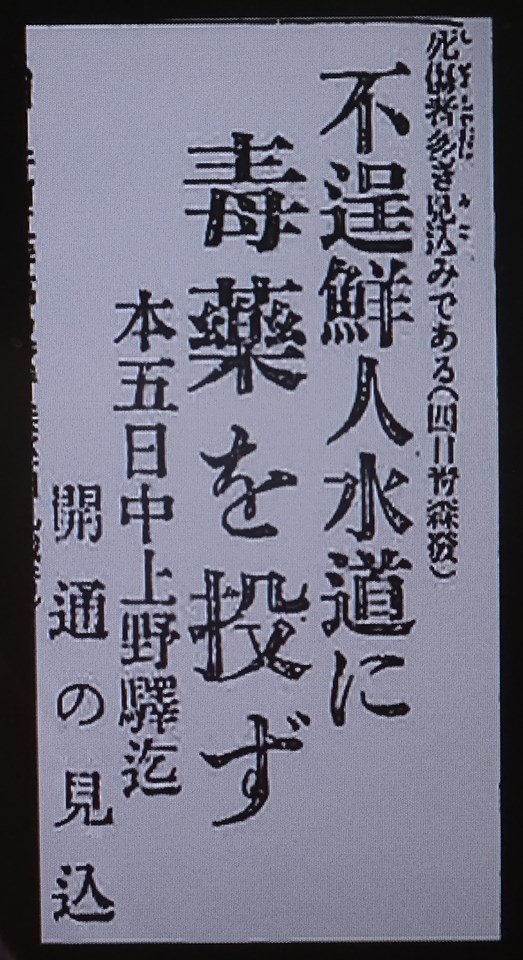 死傷者多き見込みである(四日青森發)
不逞鮮人水道に
毒藥を投ず
本五日中上野驛迄
開通の見込